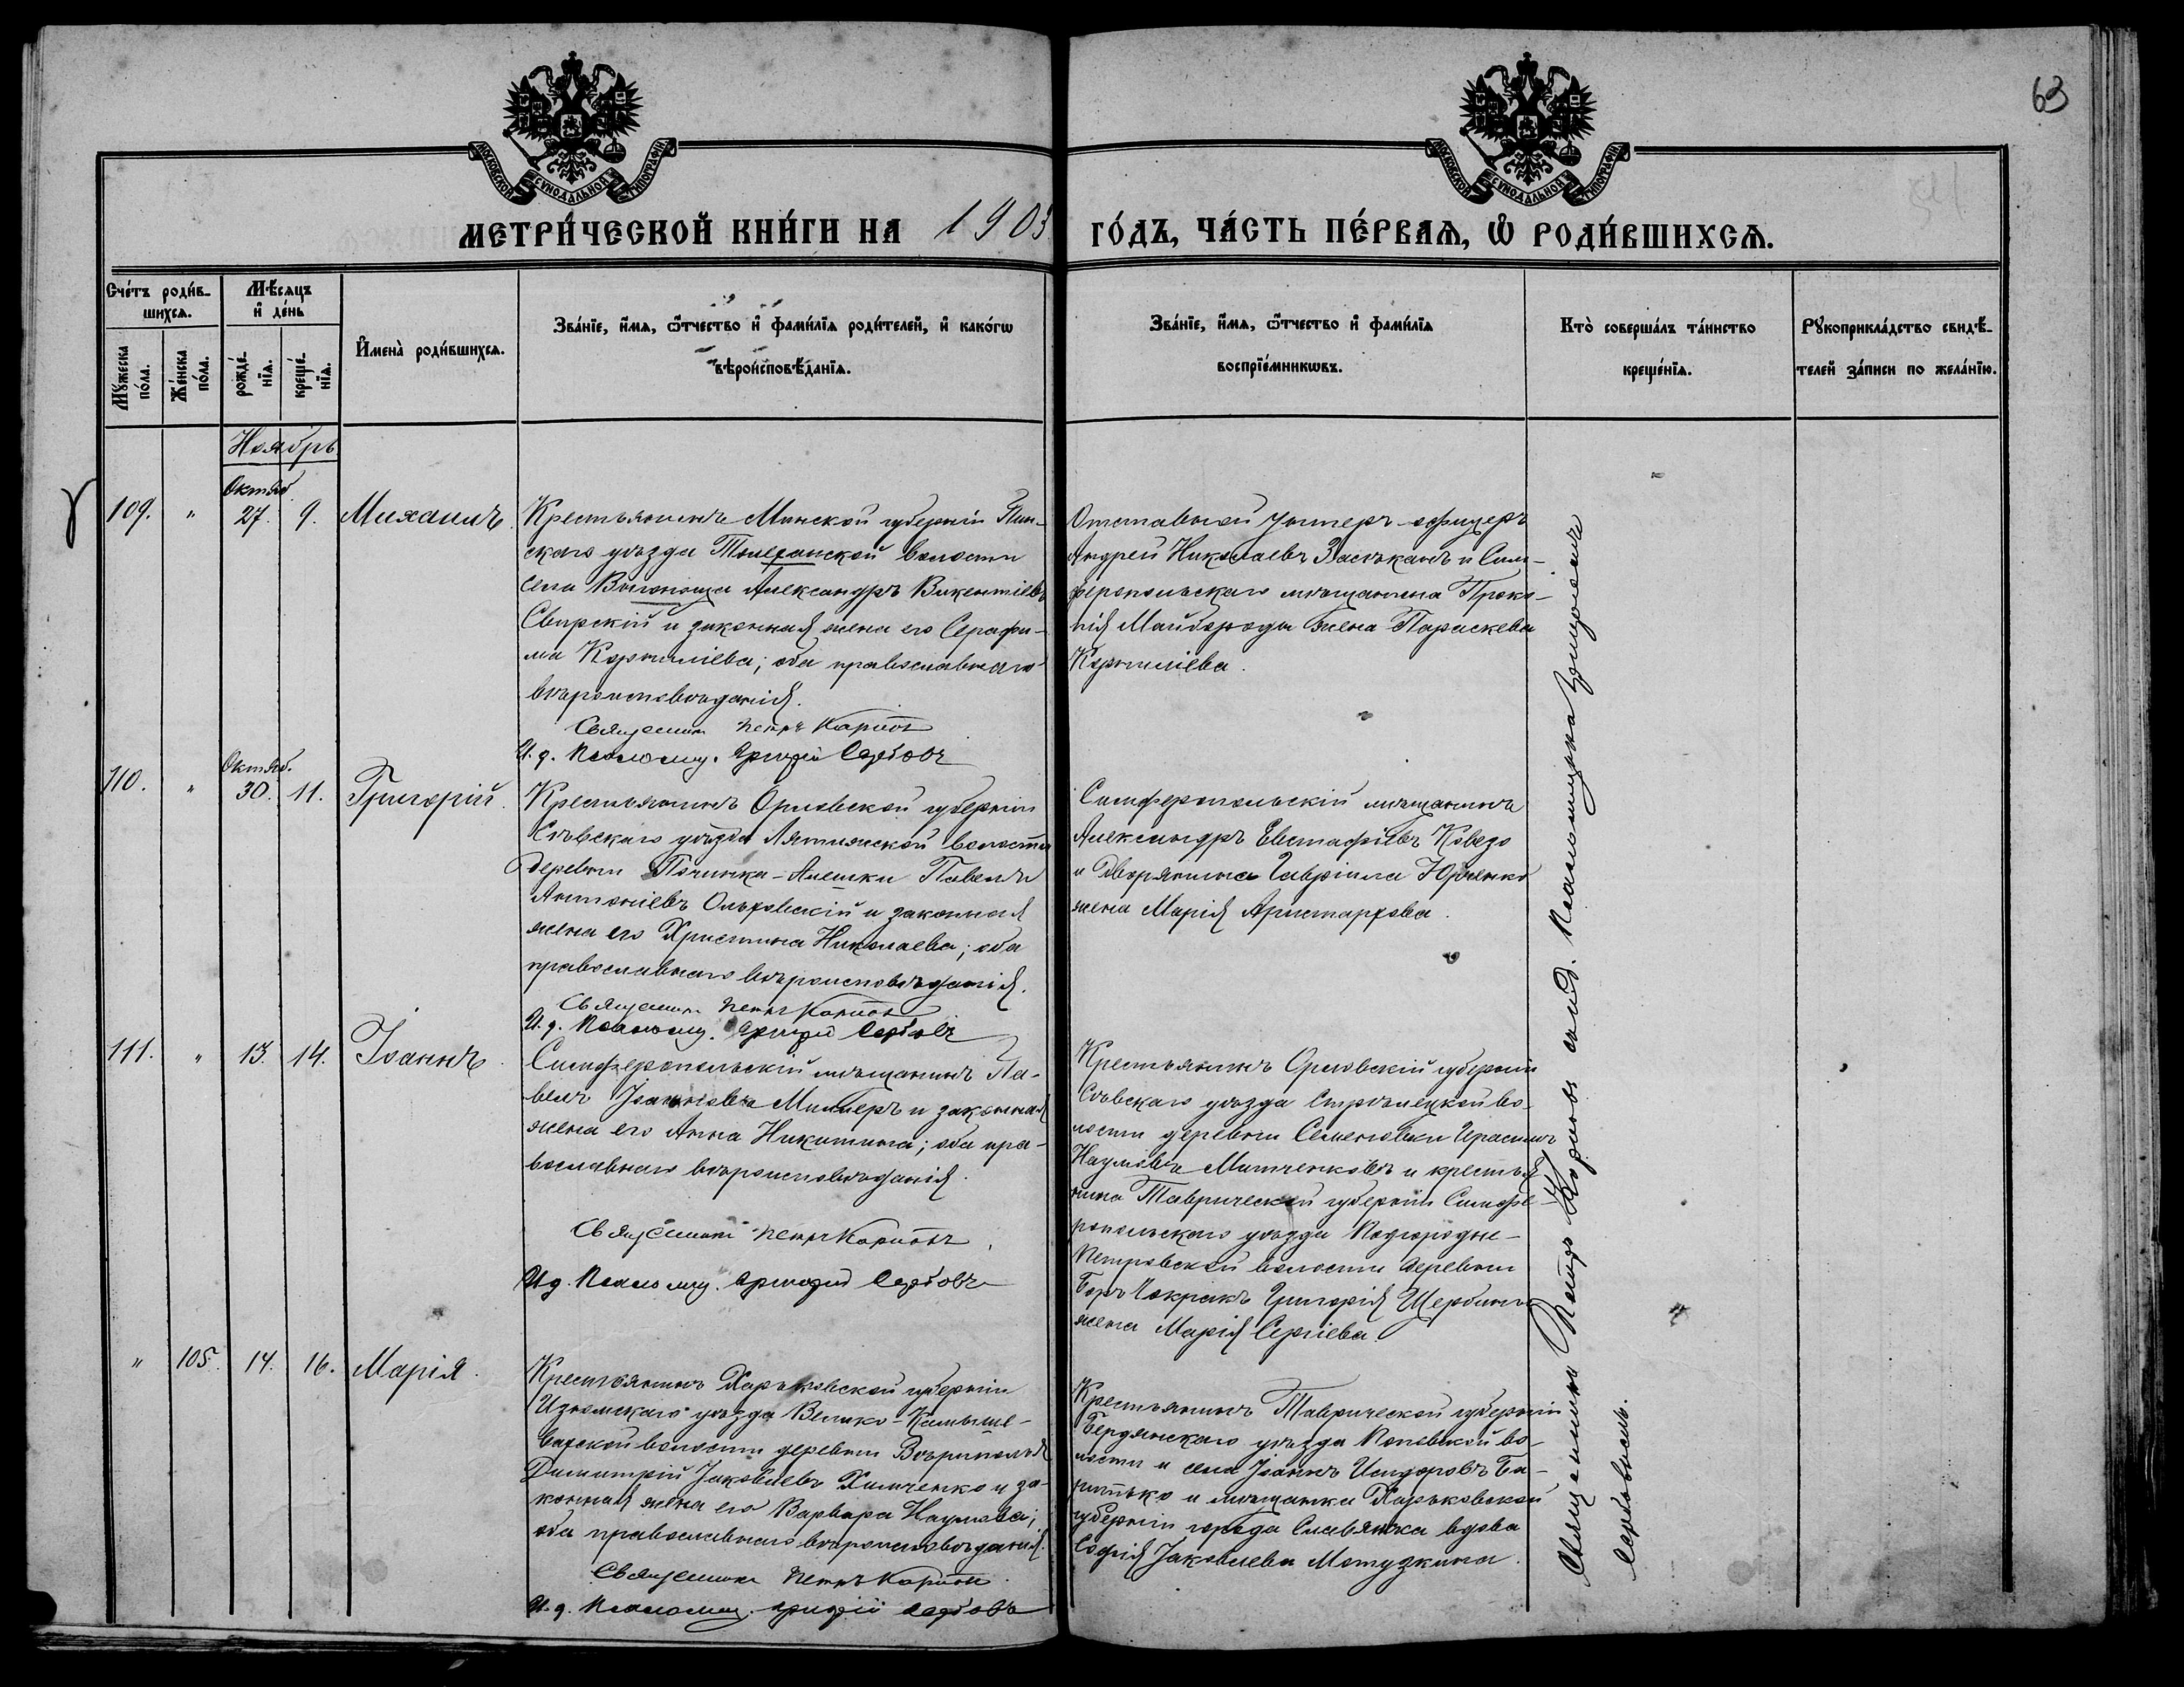 63
МОСКОВСКОЙ СѴНОДАЛЬНОЙ ТИПОГРАФІИ
МОСКОВСКОЙ СѴНОДАЛЬНОЙ ТИПОГРАФІИ
МЕТРИ́ЧЕСКОЙ КНИ́ГИ НА 1903 ГО́ДЪ, ЧА́СТЬ ПЕ́РВАѦ, Ѡ҆ РОДИ́ВШИХСѦ.
Сче́тъ роди́в-
шихсѧ.
Мꙋ́жеска
по́ла.
Же́нска
по́ла.
Мѣ́сѧцъ
и҆ де́нь
рожде́-
нїѧ.
креще́-
нїѧ.
И҆мена̀ роди́вшихсѧ.
Зва́нїе, и҆́мѧ, ѻ҆́тчество и҆ фами́лїѧ роди́телей, и҆ како́гѡ
вѣроисповѣ́данїѧ.
Зва́нїе, и҆́мѧ, ѻ҆́тчество и҆ фами́лїѧ
воспрїе́мникѡвъ.
Кто̀ соверша́лъ та́инство
креще́нїѧ.
Рꙋкоприкла́дство свидѣ́-
телей за́писи по жела́нїю.
Ноябрь
109. " Октяб. 27. 9. Михаилъ.
Крестьянинъ Минской губерніи Пин-
скаго уѣзда Телеханской волости
села Выгонощи Александръ Викентіевъ
Свирскій и законная жена его Серафи-
ма Корниліева; оба православнаго
вѣроисповѣданія.
Священникъ Петръ Карповъ
И. д. Псаломщ. Григорій Сербовъ
Отставной унтеръ-офицеръ
Андрей Николаевъ и Сим-
феропольскаго мѣщанина Проко-
пія Майбороды жена Параскева
Корниліева.
110. " Октяб. 30. 11. Григорій.
Крестьянинъ Орловской губерніи
Сѣвскаго уѣзда волости
деревни Починка-Алешки Павелъ
Антоніевъ Ольховскій и законная
жена его Христина Николаева; оба
православнаго вѣроисповѣданія.
Священник. Петръ Карповъ
И. д. Псаломщ. Григорій Сербовъ
Симферопольскій мѣщанинъ
Александръ Евстафіевъ Коведо
и Дворянина Гавріила Юрченко
жена Марія Аристархова.
111. " 13. 14. Іоаннъ.
Симферопольскій мѣщанинъ Па-
велъ Іоанновъ Миллеръ и законная
жена его Анна Никитина; оба пра-
вославнаго вѣроисповѣданія.
Священникъ Петръ Карповъ
И. д. Псаломщ. Григорій Сербовъ
Крестьянинъ Орловскій губерніи
Сѣвскаго уѣзда Стрѣлецкой во-
лости деревни Семеновки Герасимъ
Наумовъ Митченковъ и крестья-
нина Таврической губерніи Симфе-
ропольскаго уѣзда Подгородне-
Петровской волости деревни
Боръ Чокракъ Григорія Щербины
жена Марія Сергіева.
" 105. 14. 16. Марія.
Крестьянинъ Харьковской губерніи
Изюмскаго уѣзда Велико-Камыше-
вахской волости деревни Вѣрополья
Димитрій Іаковлевъ Химченко и за-
конная жена его Варвара Наумова;
оба православнаго вѣроисповѣданія.
Священникъ Петръ Карповъ
И. д. Псаломщ. Григорій Сербовъ
Крестьянинъ Таврической губерніи
Бердянскаго уѣзда Поповской во-
лости и села Іоаннъ Исидоровъ
и мѣщанка Харьковской
губерніи города Славянска вдова
Софія Іаковлева Мотузкина.
Священникъ Петръ Карповъ съ и. д. Псаломщика Григоріемъ
Сербовымъ.